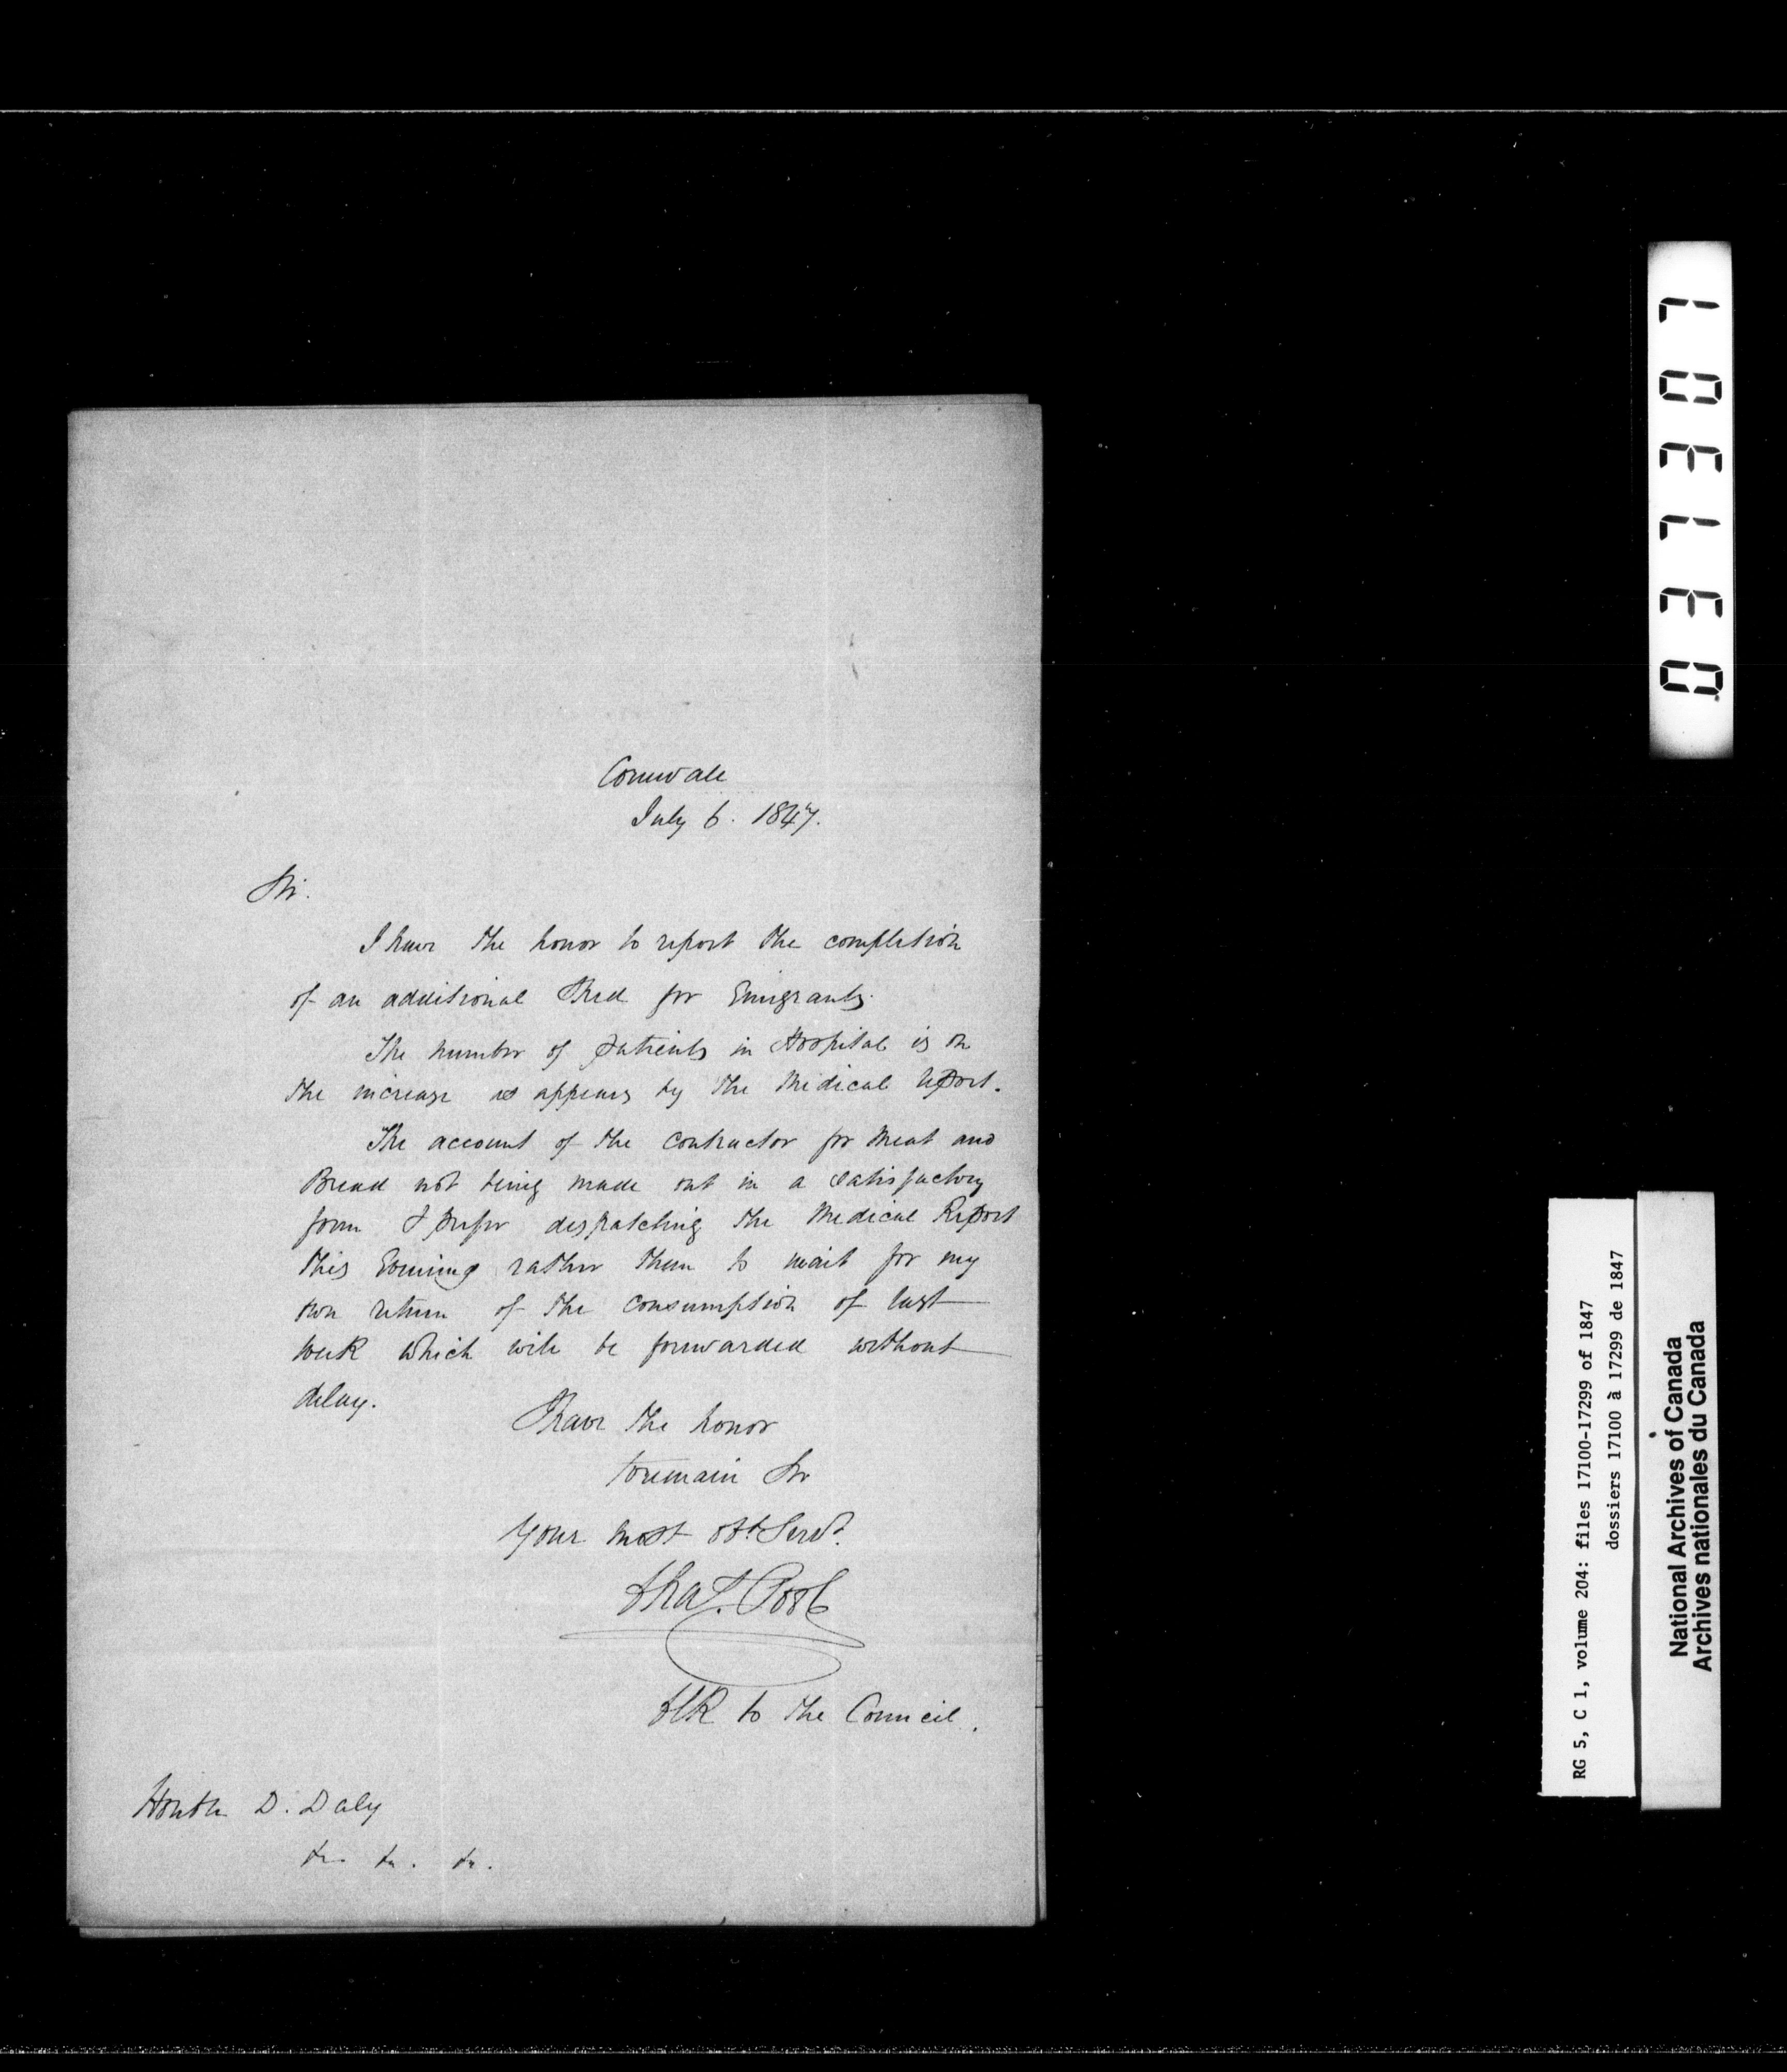 Cornwall
July 6. 1847.
Sir.
I have the honor to report the completion
of an additional Shed for Emigrants.
The number of patients in Hospital is on
the increase as appears by the Medical report.
The account of the contractor for Meat and
Bread not being made out in a satisfactory
form I prefer despatching the Medical Report
this Evening rather than to wait for my
own return of the consumption of last
week which will be forwarded without
delay.
I have the honor
to remain Sir
Your most obt. Servt.
Chas. Poole
Clk to the Council.
Honble D. Daly
&c. &c. &c.
031301
RG 5, C 1, volume 204: files 17100-17299 of 1847
dossiers 17100 à 17299 de 1847
National Archives of Canada
Archives nationales du Canada